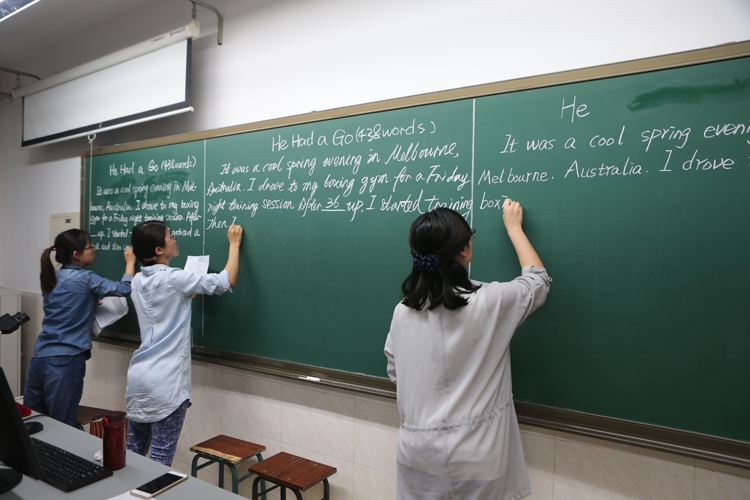 He Had a Go (438 words)
It was a cool spring evening in Mel-
bourne, Australia. I drove to my boxing
gym for a Friday night training session. After
up. I started
noticed a
and
He Had a Go (438 words)
It was a cool spring evening in Melbourne,
Australia. I drove to my boxing gym for a Friday
night training session. After 36 up, I started training
Then I
He
It was a cool spring even
Melbourne. Australia. I drove
box